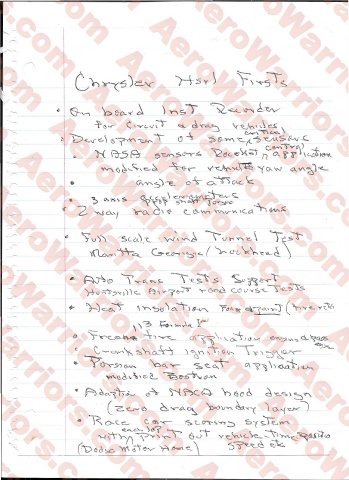 Chrysler Hsrl Firsts
• On board Inst Recorder
For Circuit & drag vehicles
• Development of some critical sensors
• NASA sensors Rocket control application
modified for vehicle yaw angle
• angle of attack
• 3 axis accelerometers
drive shaft torque
• 2 way radio communications
• Full scale Wind Tunnel Test
Marietta Georgia (Lockheed)
• Auto Trans Tests Support
Huntsville Airport road course Tests
• Heat insulation Foam & paint (fire ret)
113 Formula
• Freon fire application
• Crankshaft Ignition Trigger
• Torsion bar seat application
modified Bostrom
• Adaption of NACA hood design
(zero drag boundry layer)
• Race car scoring system
with each lap print out vehicle-time position
(Dodge Motor Home) speed etc
AeroWarriors.com